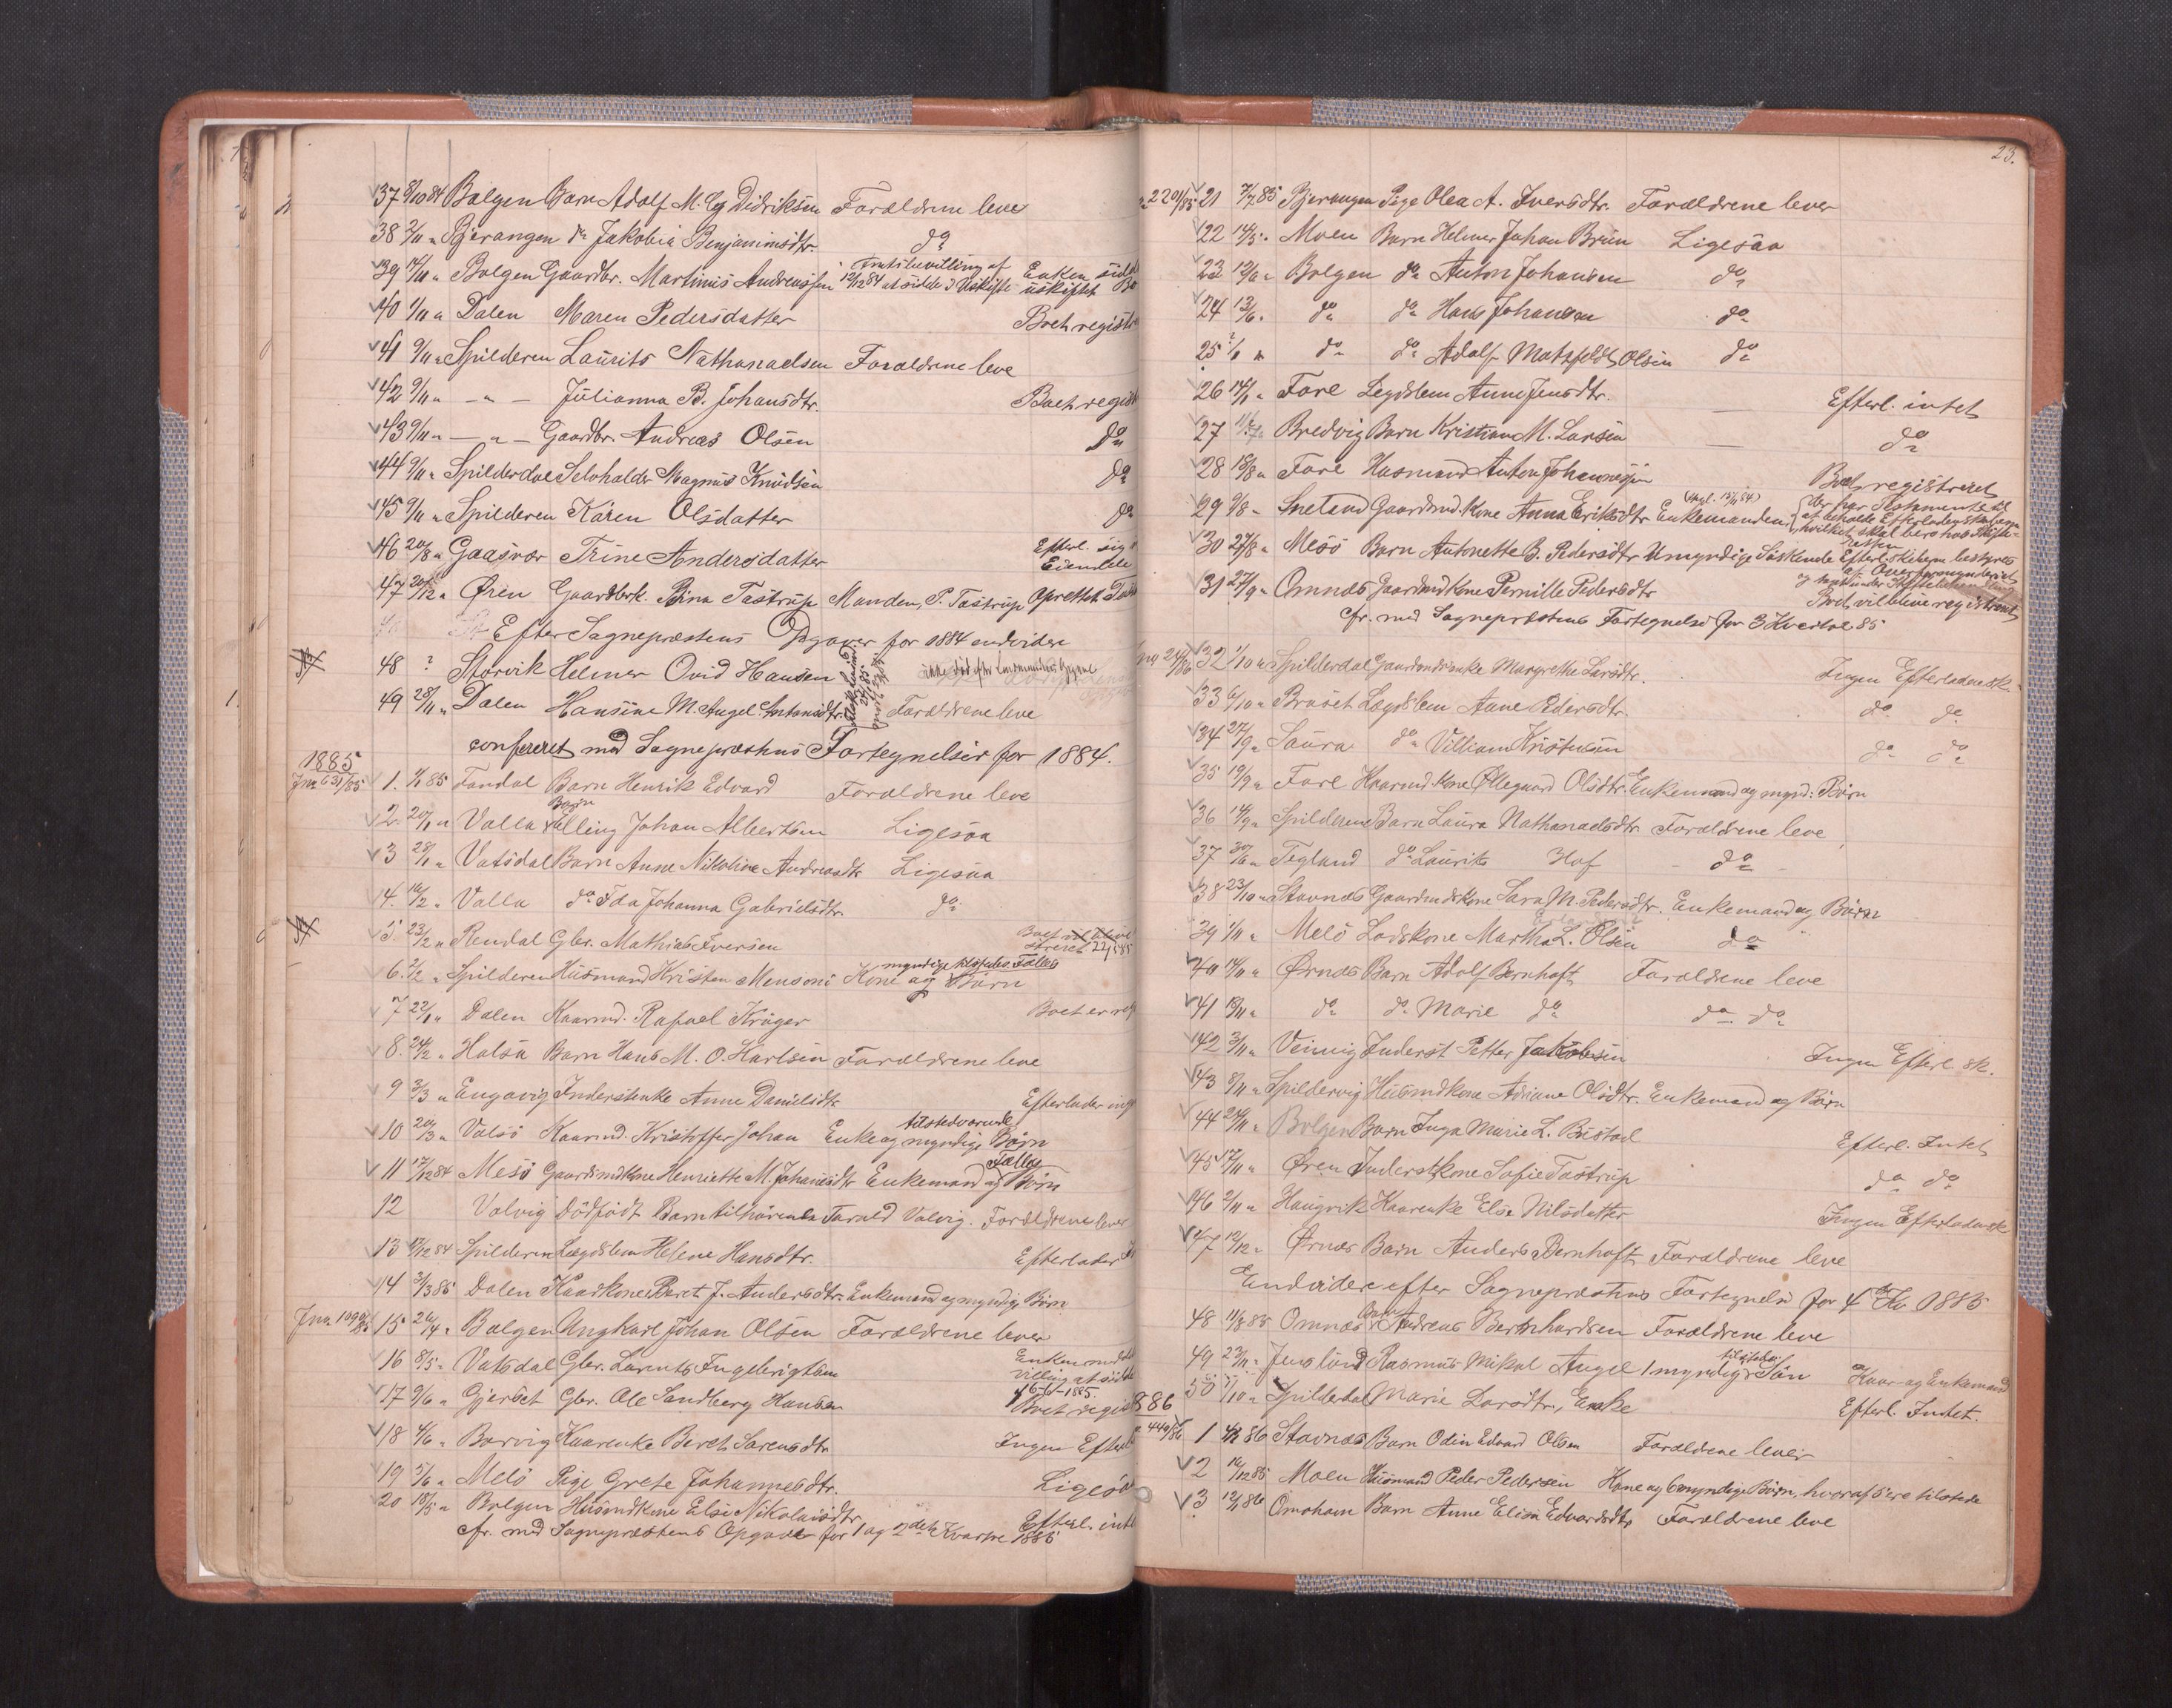 37 8/10 84 Bolgen Barn Adolf M. Eg Didriksen Forældrene leve
38 2/11 " Bjerangen do Jakobia Benjaminsdtr. do
39 14/11 " Bolgen Gaardbr. Martinus Andreassen Amtsbevilling af 12/12 84 at sidde i Uskifte Enken sid uskiftet Bo
40 1/11 " Dalen Maren Pedersdatter Boet registr
41 9/11 " Spilderen Laurits Nathanaelsen Forældrene leve
42 9/11 " — " — Julianna B. Johansdtr. Boet regist
43 9/11 " — " — Gaardbr. Andreas Olsen do
44 9/11 " Spilderdal Selvholder Magnus Knudsen do
45 9/11 " Spilderen Karen Olsdatter do
46 20/8 " Gaasvær Trine Andersdatter Efterl. sig Eiendele
47 20/12 " Øren Gaardbrk. Rina Tastrup Manden, P. Tastrup oprettet
Efter Sognepræstens Opgaver for 1884 endvidere
48 ? Storvik Helmer Ovid Hansen
49 28/11 " Dalen Hansine M. Angel Antonsdtr. Forældrene leve
confereret med Sognepræstens Fortegnelser for 1884.
1885
Jno 631/85 1. 1/1 85 Fondal Barn Henrik Edvard Forældrene leve
2. 20/1 " Valla Barn Elling Johan Albertsen Ligesaa
3 28/1 " Vatsdal Barn Anne Nikoline Andreasdtr Ligesaa
4. 10/2 " Valla do Ida Johanna Gabrielsdtr. do
5. 23/2 " Rendal Gbr. Mathias Iversen
6. 2/2 " Spilderen Husmand Kristen Mensoni Kone og myndige Fælles Børn
7 22/1 " Dalen Kaarmd. Rafael Krüger Boet er reg
8. 24/2 " Halsa Barn Hans M. O. Karlsen Forældrene leve
9 3/3 " Engavig Inderstenke Anne Danielsdtr. Efterlader
10 20/3 " Valsö Kaarmd. Kristoffer Johan Enke og tilstedværende myndige Børn
11 17/12 84 Mesö Gaardmdkone Henriette M. Johansdtr Enkemand og Fælles Børn
12 Valvig Dödfödt Barn tilhörende Torald Valvig. Forældrene lever
13 17/12 84 Spilderen Lægdslem Helene Hansdtr. Efterlader
14 3/3 85 Dalen Kaarkone Beret J. Andersdtr. Enkemand og myndige Børn
Jno 1090/85 15 26/4 " Bolgen Ungkarl Johan Olsen Forældrene lever
16 8/5 " Vatsdal Gbr. Lorents Ingebrigtsen Enken med villing at sidde
17 9/6 " Gjerset Gbr. Ole Sandberg Hansen 16-6-1885. Boet regi
18 4/6 " Borvig Kaarenke Beret Sørensdtr. Ingen Efterl
19 5/6 " Melö Pige Grete Johannesdtr. Ligesaa
20 18/5 " Bolgen Husmdkone Elsi Nikolaisdtr. Efterl. intet
cfr. med Sognepræstens Opgave for 1 og 2det Kvartal 1885
23.
21 7/7 85 Bjerangen Pige Olea A. Iversdtr. Forældrene lever
22 14/5 " Moen Barn Helmer Johan Brun Ligesaa
23 12/6 " Bolgen do Anton Johansen do
24 13/6 " do do Hans Johansen do
25 2/1 " do do Adolf Matzfeldt Olsen do
26 14/1 " Fore Legdslem Anne Jensdtr. — Efterl. intet
27 11/7 " Bredvig Barn Kristian M. Larsen — do
28 18/8 " Fore Husmand Anton Johannesen Boet registreret
29 9/8 " Snetind Gaardmd. Kone Anna Eriksdtr Enkemanden, der har Testamente til at beholde Efterladenskaberne hvilket skal bero hos Skifteretten
30 27/8 " Mesö Barn Antonette B. Pedersdtr Umyndige Söskende Efterl.skaberne bestyres af Overformynderiet
31 27/9 " Omnæs Gaardmdkone Pernille Pedersdtr Boet vil blive registreret
cfr. med Sognepræstens Fortegnelse for 3 Kvartal 85
32 1/10 " Spilderdal Gaardmdsenke Margrethe Larsdtr. Ingen Efterladensk.
33 6/10 " Bruset Lægdslem Anne Pedersdtr. do do
34 27/9 " Saura do Villiam Kristensen do do
35 19/9 " Fore Kaarmd kone Ollegaard Olsdtr. Enkemand og mynd. Børn
36 14/9 " Spilderen Barn Laura Nathanaelsdtr. Forældrene leve
37 30/6 " Tegland do Laurits Hof do
38 23/10 " Stavnæs Gaardmdskone Sara M. Pedersdtr. Enkemand og Børn
39 1/11 " Melö Lodskone Martha L. Olsen do
40 14/11 " Ørnæs Barn Adolf Bernhoft Forældrene leve
41 13/11 " do do Marie do do do
42 3/11 " Veinvig Inderst Petter Jakobsen Ingen Efterl sk.
43 8/11 " Spildervig Husmdkone Adriane Olsdtr. Enkemand og Børn
44 24/11 " Bolgen Barn Inga Marie L. Bustad Efterl. Intet
45 17/11 " Øren Inderstkone Sofie Tastrup do do
46 2/11 " Haugvik Kaarenke Else Nilsdatter Ingen Efterladensk
47 12/12 " Ørnæs Barn Anders Bernhoft Forældrene leve
Endvidere efter Sognepræstens Fortegnelse for 4de Kv. 1885
48 11/8 85 Omnæs Barn Andreas Bernhardsen Forældrene leve
49 23/11 " Jenslund Rasmus Mikal Angel 1 myndig tilstede Sön Kaar og Enkemand
50 5/10 " Spilderdal Marie Larsdtr., Enke Efterl. Intet.
886
440/86 1 4/2 86 Stavnæs Barn Odin Edvard Olsen Forældrene lever
2 16/12 85 Moen Husmand Peder Pedersen Kone og 6 myndige Børn, hvoraf 5 ere tilstede
3 12/1 86 Omoham Barn Anne Elisa Edvardsdtr Forældrene leve